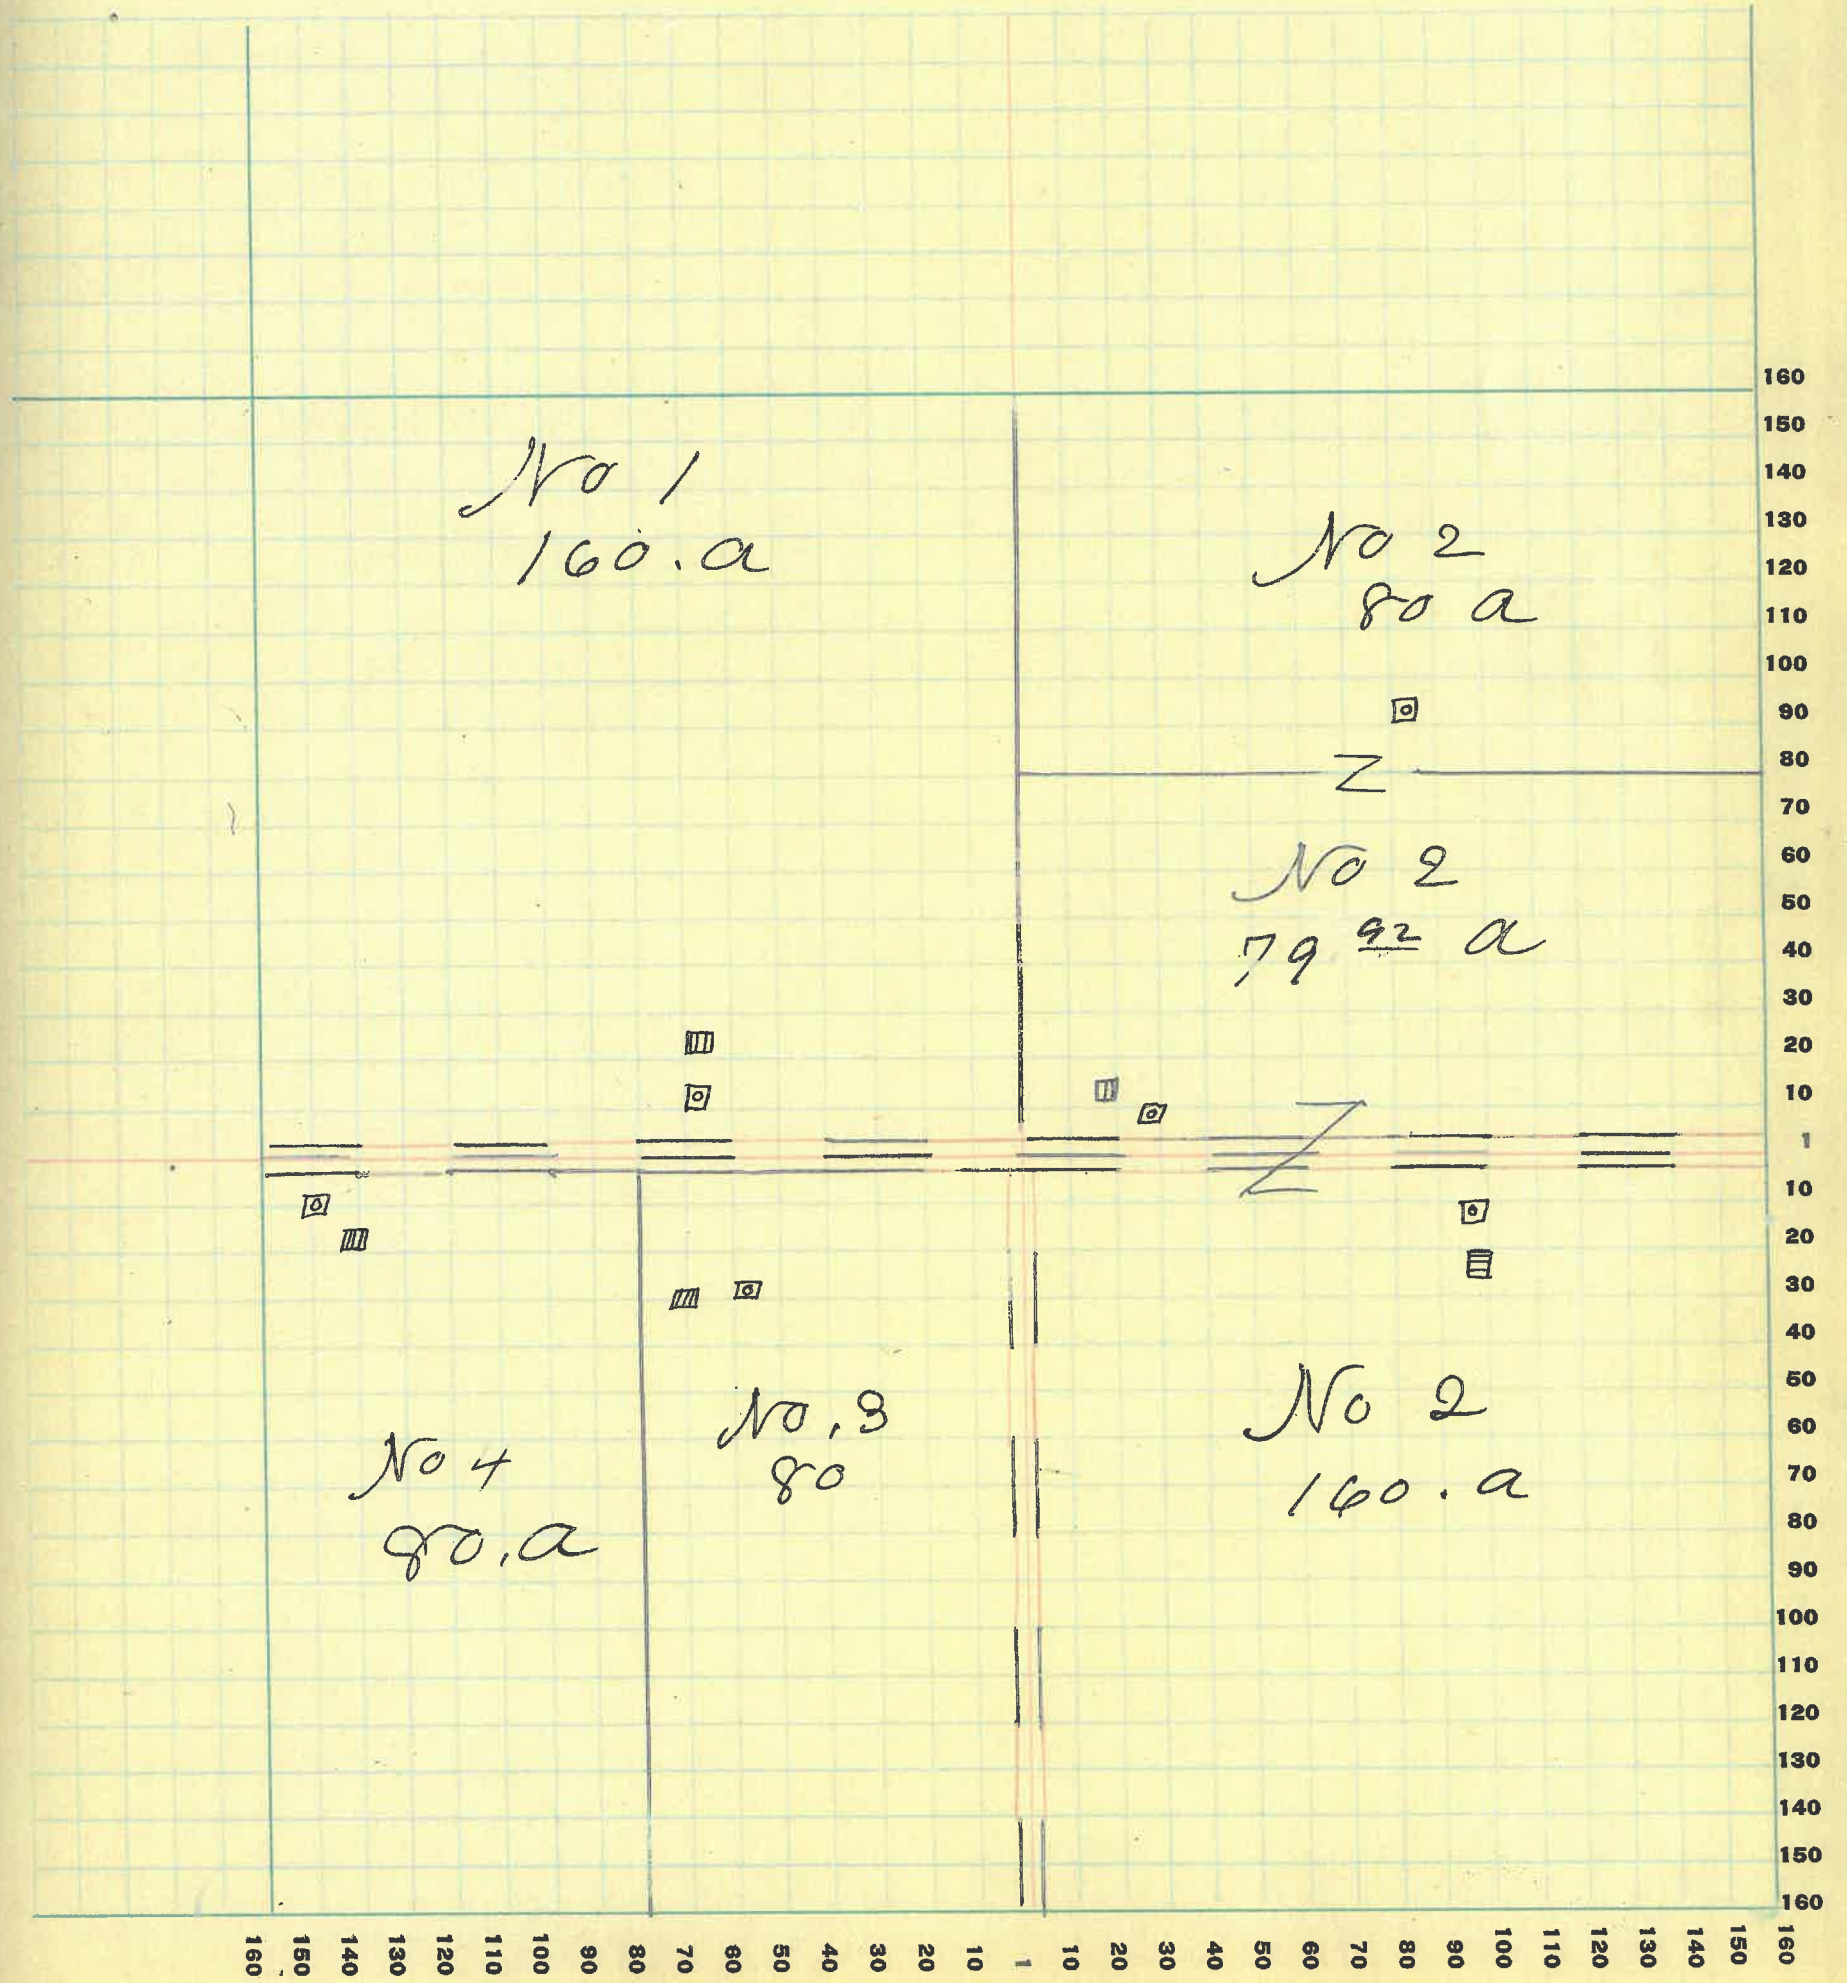 No 1
160.a
No 2
80 a
Z
No 2
79 92 a
Z
No 4
80.a
No.3
80
No 2
160.a
160
150
140
130
120
110
100
90
80
70
60
50
40
30
20
10
1
10
20
30
40
50
60
70
80
90
100
110
120
130
140
150
160
160 150 140 130 120 110 100 90 80 70 60 50 40 30 20 10 1 10 20 30 40 50 60 70 80 90 100 110 120 130 140 150 160